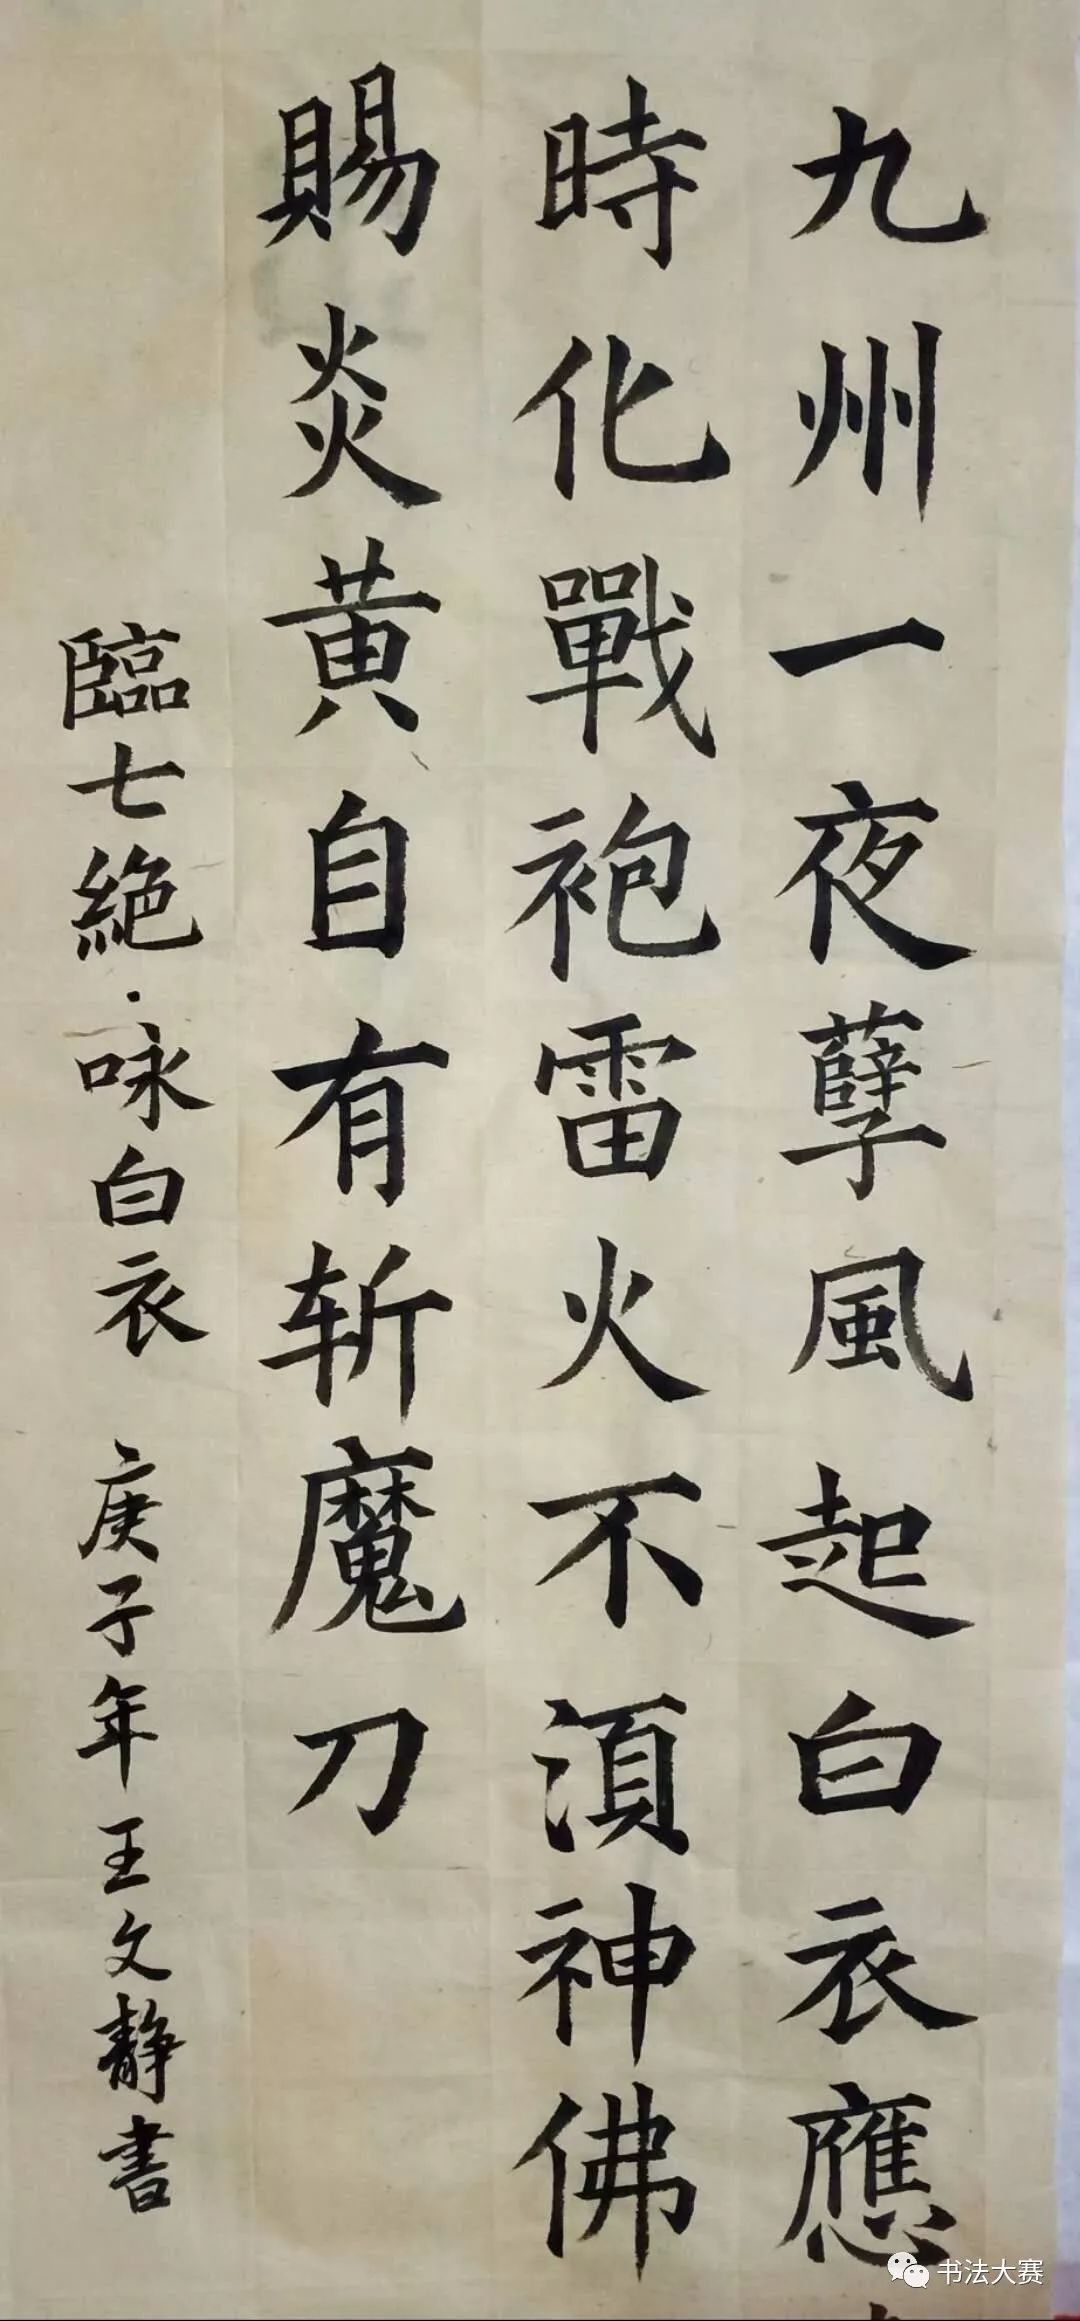 九州一夜孽風起白衣應
時化戰袍雷火不須神佛
賜炎黃自有斬魔刀
臨七絕·咏白衣 庚子年王文靜書
书法大赛